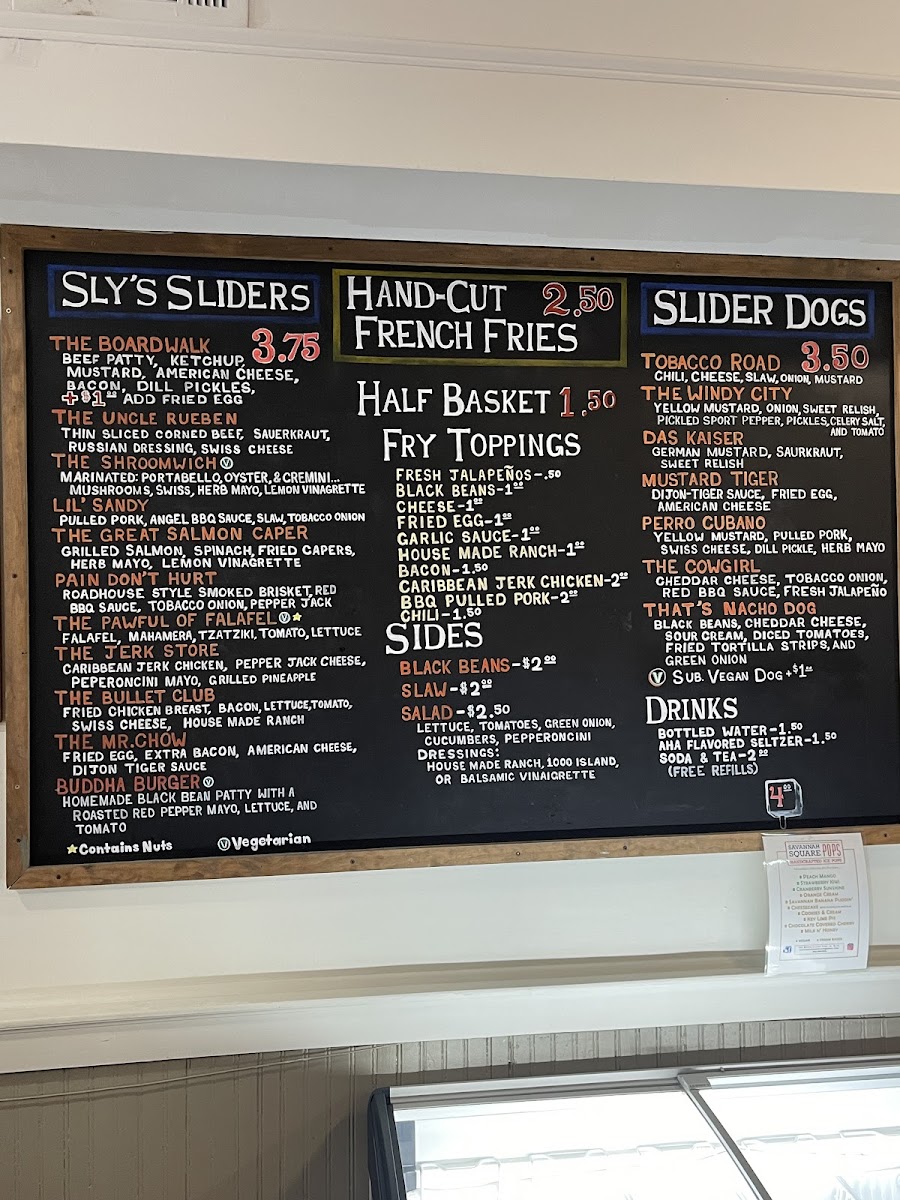 SLY'S SLIDERS
THE BOARDWALK 3.75
BEEF PATTY, KETCHUP,
MUSTARD, AMERICAN CHEESE,
BACON, DILL PICKLES,
+$1.00 ADD FRIED EGG
THE UNCLE RUEBEN
THIN SLICED CORNED BEEF, SAUERKRAUT,
RUSSIAN DRESSING, SWISS CHEESE
THE SHROOMWICH Ⓥ
MARINATED: PORTABELLO, OYSTER, & CREMINI...
MUSHROOMS, SWISS, HERB MAYO, LEMON VINAGRETTE
LIL' SANDY
PULLED PORK, ANGEL BBQ SAUCE, SLAW, TOBACCO ONION
THE GREAT SALMON CAPER
GRILLED SALMON, SPINACH, FRIED CAPERS,
HERB MAYO, LEMON VINAGRETTE
PAIN DON'T HURT
ROADHOUSE STYLE SMOKED BRISKET, RED
BBQ SAUCE, TOBACCO ONION, PEPPER JACK
THE PAWFUL OF FALAFEL Ⓥ★
FALAFEL, MAHAMERA, TZATZIKI, TOMATO, LETTUCE
THE JERK STORE
CARIBBEAN JERK CHICKEN, PEPPER JACK CHEESE,
PEPERONCINI MAYO, GRILLED PINEAPPLE
THE BULLET CLUB
FRIED CHICKEN BREAST, BACON, LETTUCE, TOMATO,
SWISS CHEESE, HOUSE MADE RANCH
THE MR. CHOW
FRIED EGG, EXTRA BACON, AMERICAN CHEESE,
DIJON TIGER SAUCE
BUDDHA BURGER Ⓥ
HOMEMADE BLACK BEAN PATTY WITH A
ROASTED RED PEPPER MAYO, LETTUCE, AND
TOMATO
★Contains Nuts Ⓥ Vegetarian
HAND-CUT 2.50
FRENCH FRIES
HALF BASKET 1.50
FRY TOPPINGS
FRESH JALAPEÑOS-.50
BLACK BEANS-1.00
CHEESE-1.00
FRIED EGG-1.00
GARLIC SAUCE-1.00
HOUSE MADE RANCH-1.00
BACON-1.50
CARIBBEAN JERK CHICKEN-2.00
BBQ PULLED PORK-2.00
CHILI-1.50
SIDES
BLACK BEANS-$2.00
SLAW-$2.00
SALAD-$2.50
LETTUCE, TOMATOES, GREEN ONION,
CUCUMBERS, PEPPERONCINI
DRESSINGS:
HOUSE MADE RANCH, 1000 ISLAND,
OR BALSAMIC VINAIGRETTE
SLIDER DOGS
TOBACCO ROAD 3.50
CHILI, CHEESE, SLAW, ONION, MUSTARD
THE WINDY CITY
YELLOW MUSTARD, ONION, SWEET RELISH,
PICKLED SPORT PEPPER, PICKLES, CELERY SALT,
AND TOMATO
DAS KAISER
GERMAN MUSTARD, SAURKRAUT,
SWEET RELISH
MUSTARD TIGER
DIJON-TIGER SAUCE, FRIED EGG,
AMERICAN CHEESE
PERRO CUBANO
YELLOW MUSTARD, PULLED PORK,
SWISS CHEESE, DILL PICKLE, HERB MAYO
THE COWGIRL
CHEDDAR CHEESE, TOBACCO ONION,
RED BBQ SAUCE, FRESH JALAPEÑO
THAT'S NACHO DOG
BLACK BEANS, CHEDDAR CHEESE,
SOUR CREAM, DICED TOMATOES,
FRIED TORTILLA STRIPS, AND
GREEN ONION
Ⓥ SUB. VEGAN DOG +$1.00
DRINKS
BOTTLED WATER-1.50
AHA FLAVORED SELTZER-1.50
SODA & TEA-2.00
(FREE REFILLS)
4.00
SAVANNAH
SQUARE POPS
HANDCRAFTED ICE POPS
PEACH MANGO
STRAWBERRY KIWI
CRANBERRY SUNSHINE
ORANGE CREAM
SAVANNAH BANANA PUDDIN'
CHEESECAKE
COOKIES & CREAM
KEY LIME PIE
CHOCOLATE COVERED CHERRY
MILK N' HONEY